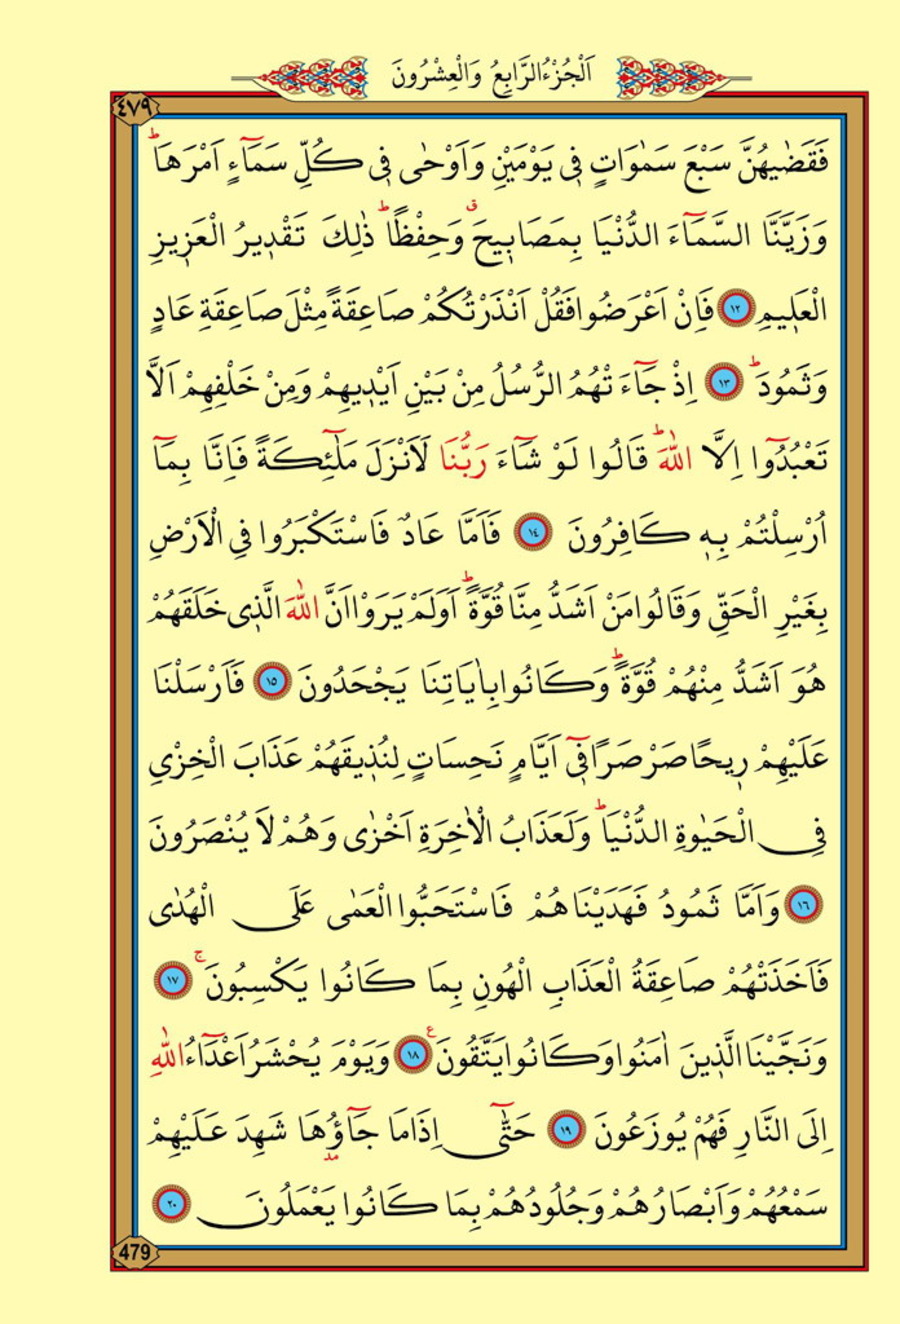 اَلْجُزْءُ الرَّابِعُ وَالْعِشْرُونَ
٤٧٩
فَقَضٰيهُنَّ سَبْعَ سَمٰوَاتٍ فٖى يَوْمَيْنِ وَاَوْحٰى فٖى كُلِّ سَمَٓاءٍ اَمْرَهَاؕ
وَزَيَّنَّا السَّمَٓاءَ الدُّنْيَا بِمَصَابٖيحَࣗ وَحِفْظًاؕ ذٰلِكَ تَقْدٖيرُ الْعَزٖيزِ
الْعَلٖيمِ ﴿١٢﴾ فَاِنْ اَعْرَضُوا فَقُلْ اَنْذَرْتُكُمْ صَاعِقَةً مِثْلَ صَاعِقَةِ عَادٍ
وَثَمُودَؕ ﴿١٣﴾ اِذْ جَٓاءَتْهُمُ الرُّسُلُ مِنْ بَيْنِ اَيْدٖيهِمْ وَمِنْ خَلْفِهِمْ اَلَّا
تَعْبُدُٓوا اِلَّا اللّٰهَؕ قَالُوا لَوْ شَٓاءَ رَبُّنَا لَاَنْزَلَ مَلٰٓئِكَةً فَاِنَّا بِمَٓا
اُرْسِلْتُمْ بِهٖ كَافِرُونَ ﴿١٤﴾ فَاَمَّا عَادٌ فَاسْتَكْبَرُوا فِى الْاَرْضِ
بِغَيْرِ الْحَقِّ وَقَالُوا مَنْ اَشَدُّ مِنَّا قُوَّةًؕ اَوَلَمْ يَرَوْا اَنَّ اللّٰهَ الَّذٖى خَلَقَهُمْ
هُوَ اَشَدُّ مِنْهُمْ قُوَّةًؕ وَكَانُوا بِاٰيَاتِنَا يَجْحَدُونَ ﴿١٥﴾ فَاَرْسَلْنَا
عَلَيْهِمْ رٖيحًا صَرْصَرًا فٖٓى اَيَّامٍ نَحِسَاتٍ لِنُذٖيقَهُمْ عَذَابَ الْخِزْىِ
فِى الْحَيٰوةِ الدُّنْيَاؕ وَلَعَذَابُ الْاٰخِرَةِ اَخْزٰى وَهُمْ لَا يُنْصَرُونَ
﴿١٦﴾ وَاَمَّا ثَمُودُ فَهَدَيْنَاهُمْ فَاسْتَحَبُّوا الْعَمٰى عَلَى الْهُدٰى
فَاَخَذَتْهُمْ صَاعِقَةُ الْعَذَابِ الْهُونِ بِمَا كَانُوا يَكْسِبُونَۚ ﴿١٧﴾
وَنَجَّيْنَا الَّذٖينَ اٰمَنُوا وَكَانُوا يَتَّقُونَࣖ ﴿١٨﴾ وَيَوْمَ يُحْشَرُ اَعْدَٓاءُ اللّٰهِ
اِلَى النَّارِ فَهُمْ يُوزَعُونَ ﴿١٩﴾ حَتّٰٓى اِذَا مَا جَٓاؤُ۫هَا شَهِدَ عَلَيْهِمْ
سَمْعُهُمْ وَاَبْصَارُهُمْ وَجُلُودُهُمْ بِمَا كَانُوا يَعْمَلُونَ ﴿٢٠﴾
479